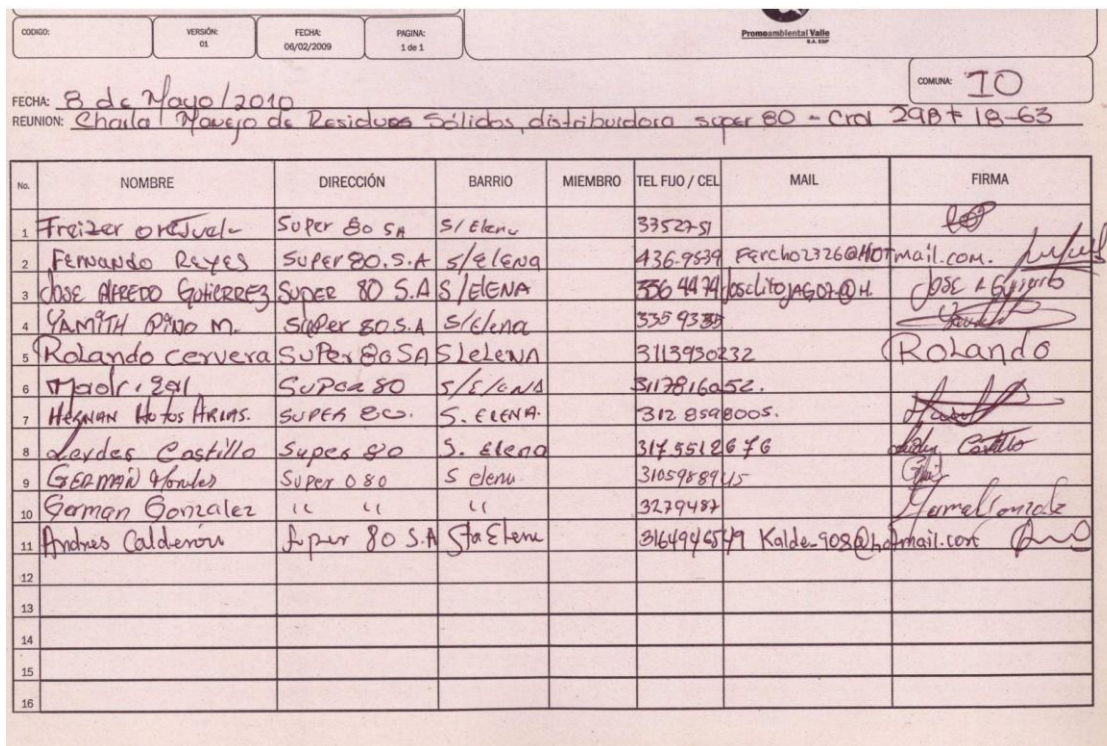 CODIGO: VERSIÓN: 01 FECHA: 06/02/2009 PAGINA: 1 de 1
Promoambiental Valle S.A. ESP
COMUNA: 10
FECHA: 8 de Mayo/2010
REUNION: Charla Manejo de Residuos Sólidos, distribuidora super 80 - Cra 29B # 18-63
No. NOMBRE DIRECCIÓN BARRIO MIEMBRO TEL FIJO / CEL MAIL FIRMA
1 Freizer Super 80 SA S/Elena 3352751
2 FERNANDO REYES SUPER 80.S.A S/ELENA 436-9539 Fercho2326@HOTmail.com.
3 JOSE ALFREDO GUTIERREZ SUPER 80 S.A S/ELENA 356 4474 JOSE
4 YAMITH PINO M. SUPer 80 S.A S/Elena 335 9335
5 Rolando cervera SUPer 80 SA 3113950232 ROLANDO
6 SUPER 80 3117816052.
7 HERNAN ARIAS. SUPER 80. S. ELENA. 312 8598005.
8 Castillo Super 80 S. Elena 317 5512676 Castillo
9 GERMAN Super 080 S elena
10 German Gonzalez " " " 3279487
11 Andres Calderón Super 80 S.A Sta Elena Kalde-908@hotmail.com
12
13
14
15
16